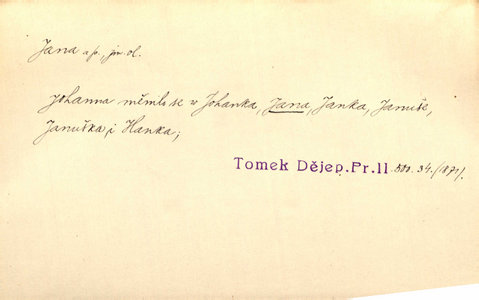 Jana a p., jm. ol.
Johanna měnilo se v Johanka, Jana, Janka, Januše,
Januška i Hanka;
Tomek Dějep. Pr. II. 500. 34. (1871).